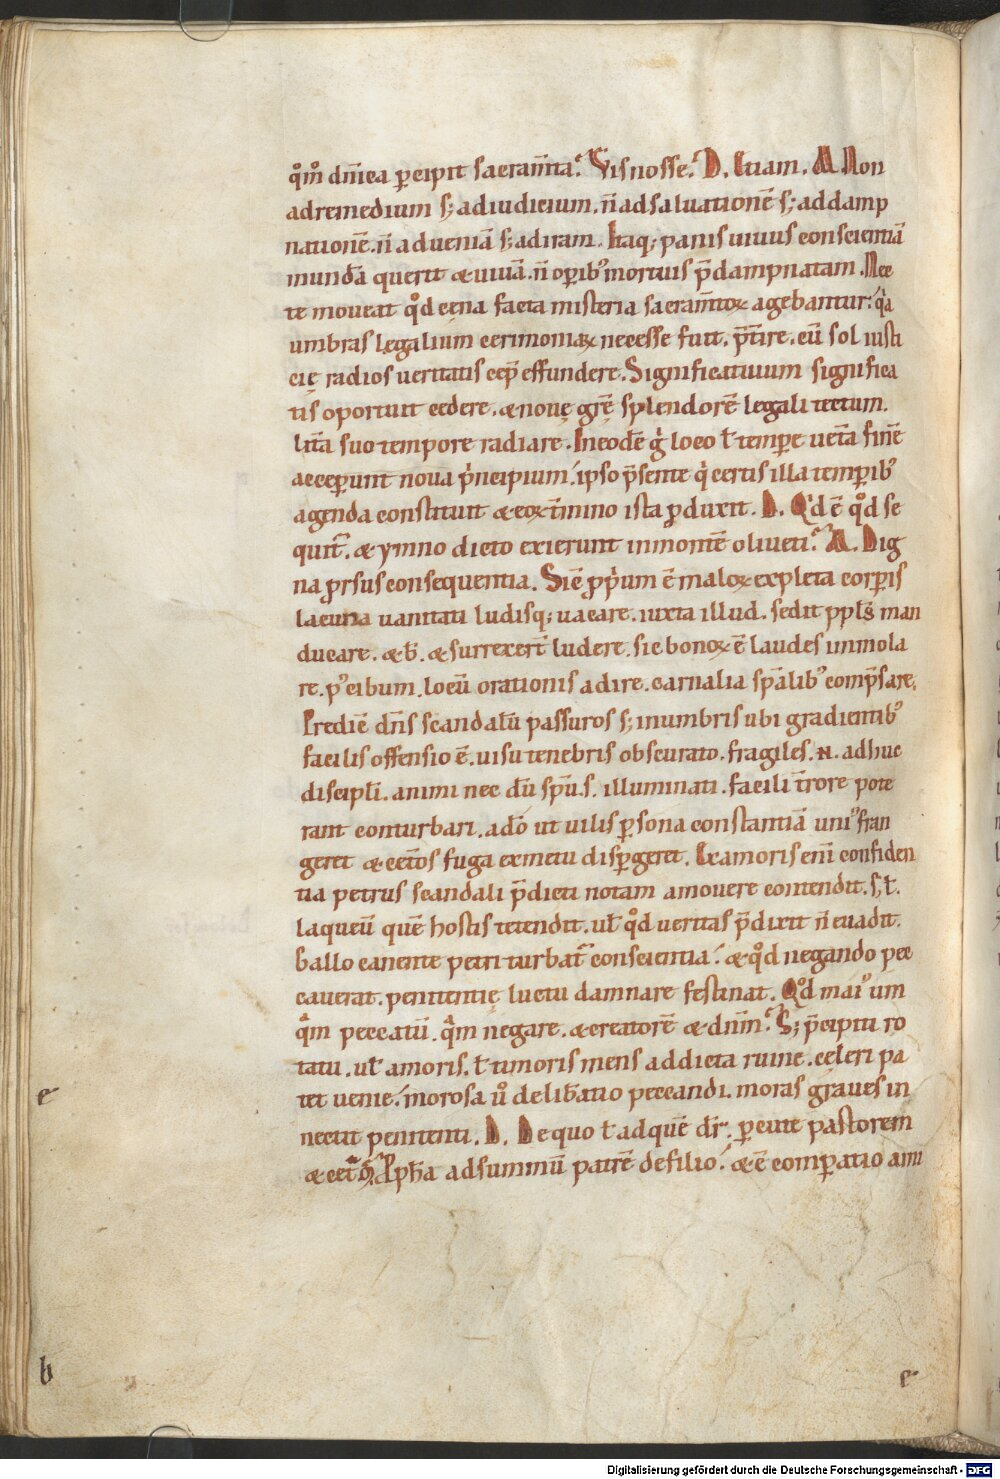 qͦm̄ dn̄ica ꝑcipit sacram̄ta. Vis nosse. D. Etiam. M. Non
ad remedium s; ad iudicium. n̄ ad saluationē s; ad damp
nationē. n̄ ad ueniā s; ad iram. Itaq; panis uiuus conscientiā
mundā querit & uiuā. n̄ oꝑib' mortuis p̄dampnatam. Nec
te moueat qͦd cena facta misteria sacram̄toꝝ agebantur. qͣa
umbras legalium cerimoniaꝝ necesse fuit. p̄t̄ire. cū sol iusti
cię radios ueritatis cep̄ effundere. Significatiuum significa
tis oportuit cedere. & nouę gr̄ę splendorē legali tectum.
litt̄a suo tempore radiare. In eodē gͥ loco ł temꝑe uet̄a finē
acceꝑunt noua pͥncipium. ipso p̄sente qͥ certis illa temꝑib'
agenda constituit & eoꝝ t̄mino ista ꝓduxit. D. Qͥd ē qͦd se
quit̄. & ymno dicto exierunt in montē oliueti. M. Dig
na ꝓrsus consequentia. Sic̄ ꝓpͥum ē maloꝝ expleta corꝑis
lacuna uanitati ludisq; uacare. iuxta illud. sedit ppl̄s man
ducare. & b̄. & surrexert̄ ludere. sic bonoꝝ ē laudes immola
re. p' cibum. locū orationis adire. carnalia sp̄alib' comp̄sare.
Predic̄ dn̄s scandalū passuros s; in umbris ubi gradientib'
facilis offensio ē. uisu tenebris obscurato. fragiles .N. adhuc
discipl̄i. animi nec dū sp̄u .s. illuminati. facili t̄rore pote
rant conturbari. adō ut uilis ꝑsona constantiā uni' fran
geret & cet̄os fuga ex metu disꝑgeret. Ex amoris eni̅ confiden
tia petrus scandali p̄dicti notam amouere contendit. s; ł.
laqueū quē hostis tetendit. uł qͦd ueritas p̄dixit n̄ euadit.
Gallo canente petri turbat̄ conscientia. & qͦd negando pec
cauerat. penitentię luctu damnare festinat. Qͥd mai' um
qͣm peccatū. qͣm negare. & creatorē & dn̄m. S; p̄cipiti ro
tatu. uł amoris. ł timoris mens addicta ruine. celeri pa
tet uenie. morosa ů delib̄atio peccandi. moras graues in
nectit penitenti. D. De quo ł ad quē dr̄. ꝑcute pastorem
& cet̄. M. Ꝓph̄a ad summū patrē de filio. & ē comꝑatio ami
e
b
e
Digitalisierung gefördert durch die Deutsche Forschungsgemeinschaft - DFG